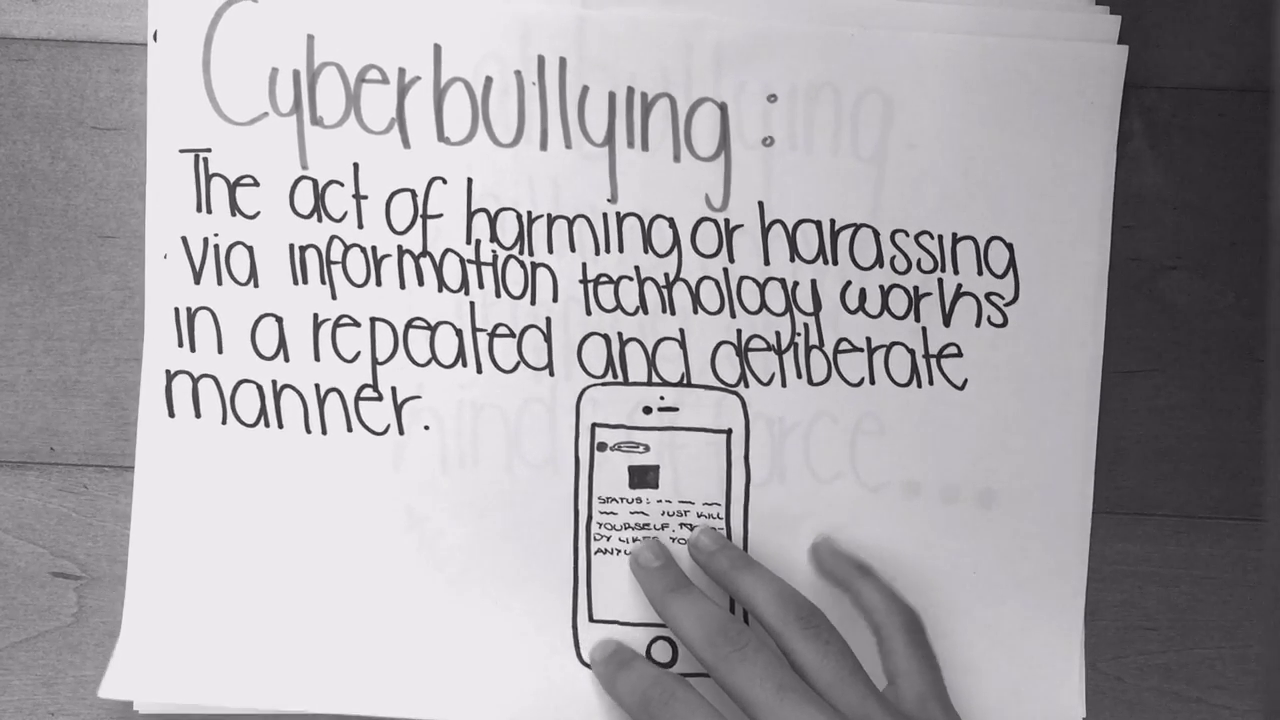 Cyberbullying:
The act of harming or harassing
via information technology works
in a repeated and deliberate
manner.
STATUS: -- — ~
~ ~ JUST KILL
YOURSELF.
DY LIKES